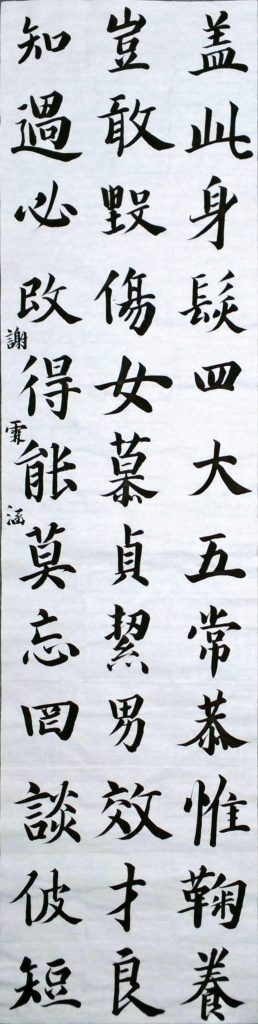 盖此身髮四大五常恭惟鞠養
豈敢毀傷女慕貞絜男效才良
知過必改得能莫忘罔談彼短
謝霏涵